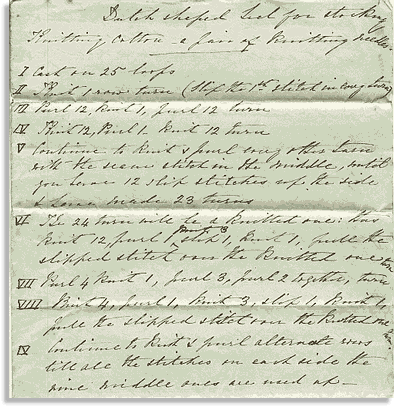 Dutch shaped heel for stocking
Knitting Cotton a pair of Knitting needles
I Cast on 25 loops
II Knit 1 row turn (slip the 1st stitch in every turn)
III Purl 12, Knit 1, purl 12 turn
IV Knit 12, Purl 1. Knit 12 turn
V Continue to Knit & purl every other turn
with the seam stitch in the middle, until
you have 12 slip stitches up the side
& have made 23 turns
VI The 24 turn will be a Knitted one: thus
Knit 12, purl 1, Knit 3 slip 1, Knit 1, pull the
slipped stitch over the Knitted one turn
VII Purl 4 Knit 1, purl 3, purl 2 together, turn
VIII Knit 4, purl 1, Knit 3, slip 1, Knit 1,
pull the slipped stitch over the Knitted one
IX Continue to Knit & purl alternate rows
till all the stitches on each side the
nine middle ones are used up —